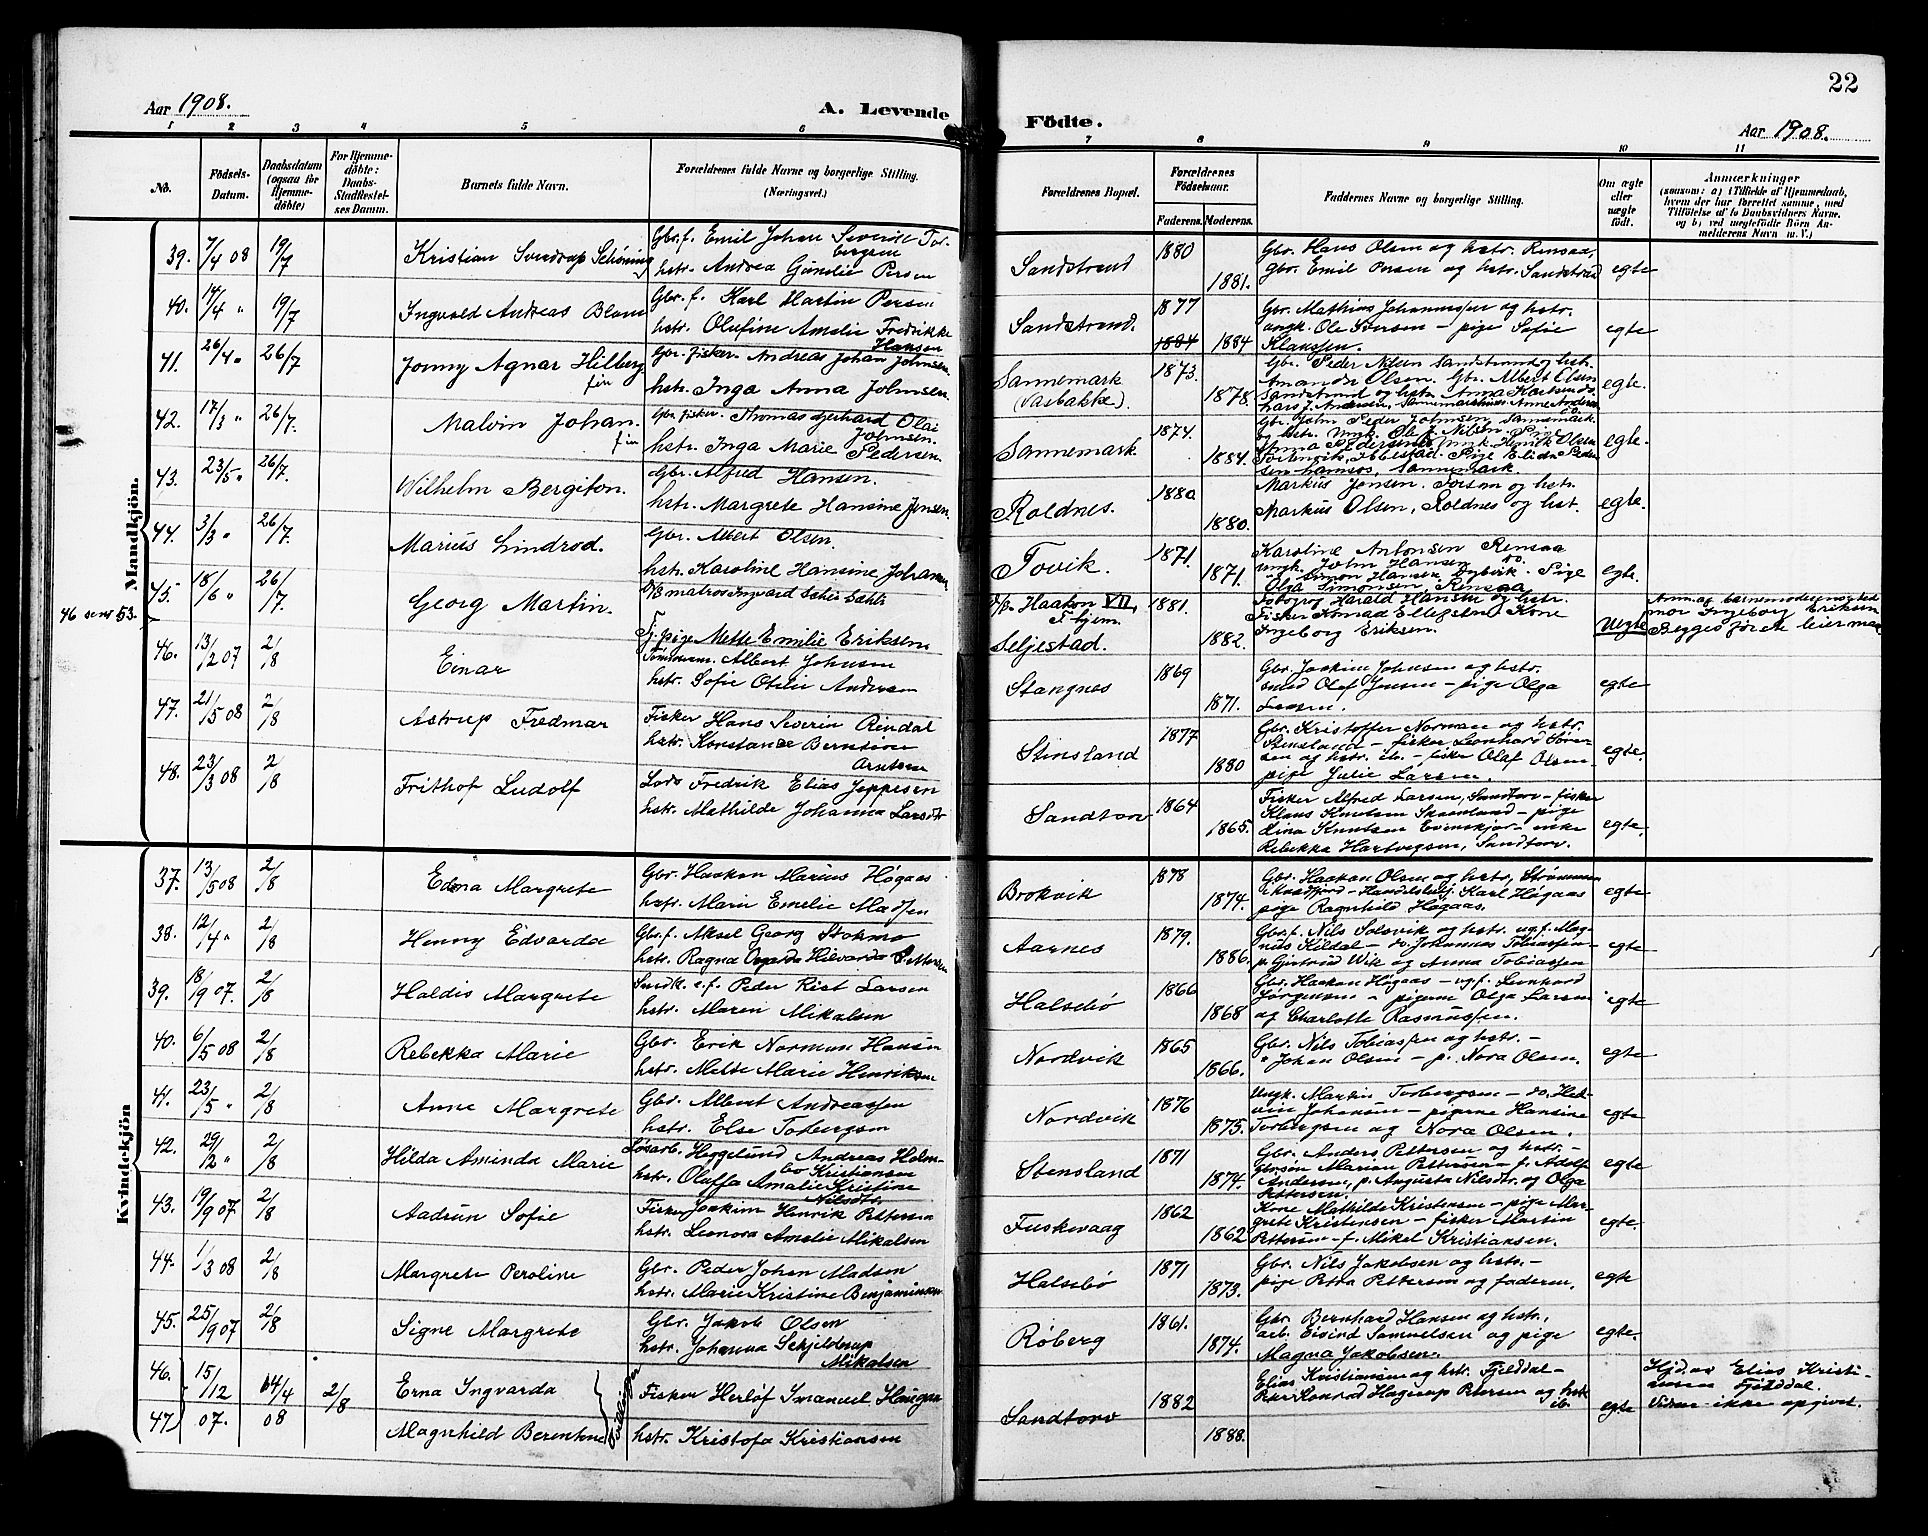 22
Aar 1908.
A. Levende
Födte.
Aar 1908.
1 2 3 4 5 6 7 8 9 10 11
No.
Födsels-
Datum.
Daabsdatum
(ogsaa for
Hjemme-
döbte)
For Hjemme-
döbte:
Daabs-
Stadfæstel-
ses Datum.
Barnets fulde Navn.
Forældrenes fulde Navne og borgerlige Stilling.
(Næringsvei.)
Forældrenes Bopæl.
Forældrenes
Födselsaar.
Faderens. Moderens.
Faddernes Navne og borgerlige Stilling.
Om ægte
eller
uægte
födt.
Anmærkninger
(saasom: a) i Tilfælde af Hjemmedaab,
hvem der har forrettet samme, med
Tilföielse af to Daabsvidners Navne.
og b) ved uægtefödte Börn An-
melderens Navn m. V.)
Mandkjön.
39. 7/4 08 19/7 Kristian Sverdrup Schöning
Gbr.f. Emil Johan
bergsen
hstr. Andrea Gunelie Persen
Sandstrand 1880 1881.
Gbr. Hans Olsen og hstr. Rensaa,
Gbr. Emil Persen og hstr. Sandstrand
egte
40. 14/4 " 19/7 Ingvald Andreas Blom
Gbr.f. Karl Martin Persen
hstr. Olufine Amelie Fredrikke
Hansen
Sandstrand. 1877 1884 1884
Gbr. Mathias Johannessen og hstr.
ungk. Ole Iversen – pige Sofie
Klaussen.
egte
41. 26/4 " 26/7 Jonny Agnar Hilberg
fin
Gbr. fisker. Andreas Johan Johnsen
hstr. Inga Anna Johnsen
Sannemark
(Vasbakke).
1873. 1878.
Gbr. Peder Nilsen Sandstrand og hstr.
Amanda Olsen. Gbr. Albert Olsen
Sandstrand og hstr. Anna
egte.
42. 17/3 " 26/7. Malvin Johan.
fin
Gbr. fisker. Thomas Gerhard Olai
Johnsen.
hstr. Inga Marie Pedersen
Sannemark 1874. 1884.
Gbr. John Peder Johnsen Sannemark
Sannemark.
egte.
43. 23/5 " 26/7. Wilhelm Bergiton.
Gbr. Alfred Hansen.
hstr. Margrete Hansine Jensen.
Roldnes. 1880 1880.
Markus Jensen. og hstr.
Markus Olsen, Roldnes og hst.
egte.
44. 3/3 " 26/7. Marius Lindrod.
Gbr. Albert Olsen.
hstr. Karoline Hansine Johansen
Tovik. 1871. 1871.
Karoline Antonsen Rensaa
ungk. John Hansen do.
" Simon Hansen Dybvik. Pige
Olga Simonsen Rensaa
egte.
46 senr 53.
45. 18/6 " 26/7. Georg Martin.
Fj. pige Mette Emilie Eriksen
Haakon VII,
F. hjem.
Seljestad.
1881. 1882.
Fotogrf. Harald Hansen og hstr.
Fisker Konrad Ellefsen. Kone
Ingeborg Eriksen.
uegte
mor Ingeborg Eriksen
Begges første leiermaal
46. 13/2 07 2/8 Einar
Tømmerm. Albert Johnsen
hstr. Sofie Otelie Andersen
Stangnes 1869 1871.
Gbr. Joakim Johnsen og hstr.
smed Olaf Jensen – pige Olga
egte
47. 21/5 08 2/8 Astrup Fredmar
Fisker Hans Severin Rendal
hstr. Konstanse Berntine
Arntsen
Stensland 1877 1880
Gbr. Kristoffer Norman og hstr.
Stensland – fisker Leonhard Sören-
sen og hstr. ib. – fisker Olaf Olsen
pige Julie Larsen.
egte.
48. 23/3 08 2/8 Frithof Ludolf
Lods Fredrik Elias Jeppesen
hstr. Mathilde Johanna Larsdtr
Sandtorv 1864 1865.
Fisker Alfred Larsen, Sandtorv – fisker
Klaus Knutsen Skaanland – pige
Lina Knutsen Evenskjær – enke
Rebekka Hartvigsen, Sandtorv.
egte.
Kvindekjön
37. 13/5 08 2/8 Edna Margrete
Gbr. Haakon Marius Høgaas
hstr. Marie Emelie Madsen
Brokvik 1878 1874.
Gbr. Haakon Olsen og hstr.
Handelsbetj. Karl Høgaas
pige Ragnhild Høgaas.
egte
38. 12/4 " 2/8 Henny Edvarda
Gbr.f. Aksel Georg Stokmo
hstr. Ragna Hilvarda Pettersen
Aarnes 1879. 1886.
Gbr.f. Nils Solsvik og hstr. ug.f. Mag-
nus Kildal – do. Johannes Tobiassen
p. Gjertrud Wik og Anna Tobiassen
egte
39. 18/10 07. 2/8 Haldis Margrete
Smedk. Peder Rist Larsen
hstr. Maren Mikalsen
Halsebø 1866 1868
Gbr. Haakon Høgaas – ug.f. Leonhard
Jørgensen – pigerne Olga Larsen
og Charlotte Rasmussen.
egte
40. 6/5 08 2/8 Rebekka Marie
Gbr. Erik Norman Hansen
hstr. Melse Marie Henriksen
Nordvik 1865 1866.
Gbr. Nils Tobiassen og hstr. –
" Johan Olsen – p. Nora Olsen.
egte
41. 23/5 " 2/8 Anne Margrete
Gbr. Albert Andreassen
hstr. Else Torbergsen
Nordvik 1876 1875.
Ungk. Martin Torbergsen – do. Hed-
vin Johansen – pigerne Hansine
Torbergsen og Nora Olsen.
egte
42. 29/12 " 2/8 Hilda Aminda Marie
Løsarb. Heggelund Andreas Holm-
bo Kristiansen
hstr. Olaffa Amalie Kristine
Nilsdtr.
Stensland 1871 1874.
Gbr. Anders Pettersen og hstr. –
Gbrsøn Marian Pettersen – f. Adolf
Andersen, p. Augusta Nilsdtr. og Olga
Pettersen.
egte
43. 19/9 07 2/8 Aadrun Sofie
Fisker Joakim Henrik Pettersen
hstr. Leonora Amelie Mikalsen
Fuskevaag 1862 1862
Kone Mathilde Kristensen – pige Mar-
grete Kristensen – fisker Martin
Pettersen – f. Mikal Kristiansen.
egte.
44. 1/3 08 2/8 Margrete Peroline
Gbr. Peder Johan Madsen
hstr. Marie Kristine Benjaminsen
Halsebø 1871 1873.
Gbr. Nils Jakobsen og hstr. –
pige Petra Pettersen og faderen.
egte
45. 25/9 07 2/8 Signe Margrete
Gbr. Jakob Olsen
hstr. Johanna Schjelderup
Mikalsen
Røberg 1861. 1874.
Gbr. Bernhard Hansen og hstr.,
arb. Eivind Samuelsen og pige
Magna Jakobsen.
egte.
46. 15/12 14/4 2/8 Erna Ingvarda
47. 07. 08 Magnhild Berentine
Tvillinger
Fisker Herlof Imanuel Haugan
hstr. Kristofa Kristiansen
Sandtorv 1882 1888.
Elias Kristiansen og hstr. Fjelddal –
Peter Konrad Hagerup Petersen og hstr
ib.
egte
Hjd. av Elias Kristi-
ansen Fjelddal.
Vidner ikke opgivet.